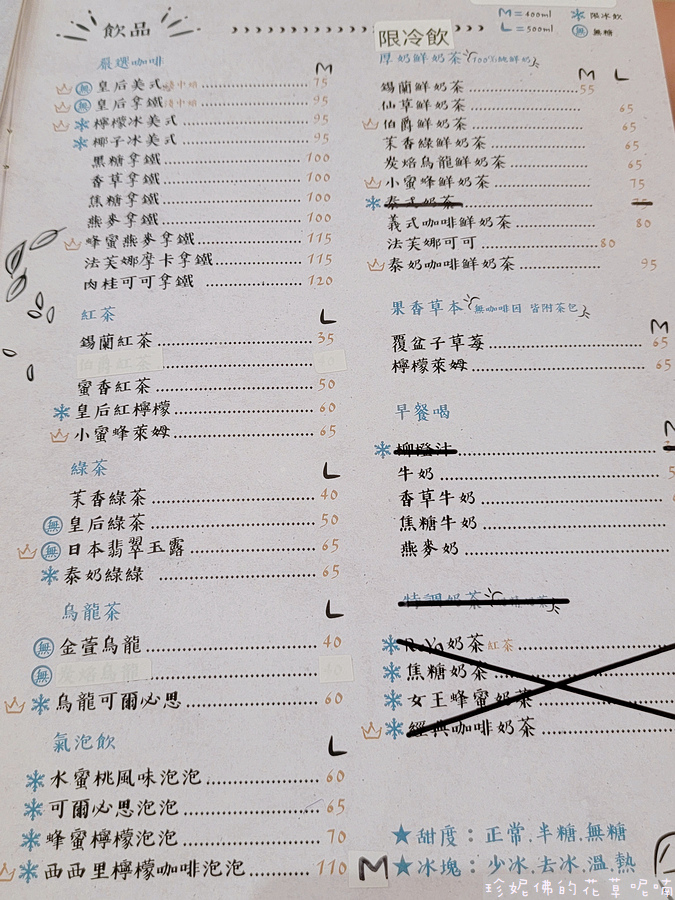 飲品
M=400ml
限冰飲
L=500ml
無 無糖
嚴選咖啡 M
無 皇后美式 75
無 皇后拿鐵 95
檸檬冰美式 95
椰子冰美式 95
黑糖拿鐵 100
香草拿鐵 100
焦糖拿鐵 100
燕麥拿鐵 100
蜂蜜燕麥拿鐵 115
法芙娜摩卡拿鐵 115
肉桂可可拿鐵 120
紅茶 L
錫蘭紅茶 35
伯爵紅茶
蜜香紅茶 50
皇后紅檸檬 60
小蜜蜂萊姆 65
綠茶 L
茉香綠茶 40
無 皇后綠茶 50
無 日本翡翠玉露 65
泰奶綠綠 65
烏龍茶 L
無 金萱烏龍 40
無 炭焙烏龍 40
烏龍可爾必思 60
氣泡飲 L
水蜜桃風味泡泡 60
可爾必思泡泡 65
蜂蜜檸檬泡泡 70
西西里檸檬咖啡泡泡 110 M
限冷飲
厚奶鮮奶茶 100%純鮮奶 M L
錫蘭鮮奶茶 55
仙草鮮奶茶 65
伯爵鮮奶茶 65
茉香綠鮮奶茶 65
炭焙烏龍鮮奶茶 65
小蜜蜂鮮奶茶 75
泰式奶茶
義式咖啡鮮奶茶 80
法芙娜可可 80
泰奶咖啡鮮奶茶 95
果香草本 無咖啡因 皆附茶包 M
覆盆子草莓 65
檸檬萊姆 65
早餐喝
柳橙汁
牛奶
香草牛奶
焦糖牛奶
燕麥奶
特調奶茶
RoYa奶茶 紅茶
焦糖奶茶
女王蜂蜜奶茶
經典咖啡奶茶
★甜度：正常.半糖.無糖
★冰塊：少冰.去冰.溫.熱
珍妮佛的花草呢喃